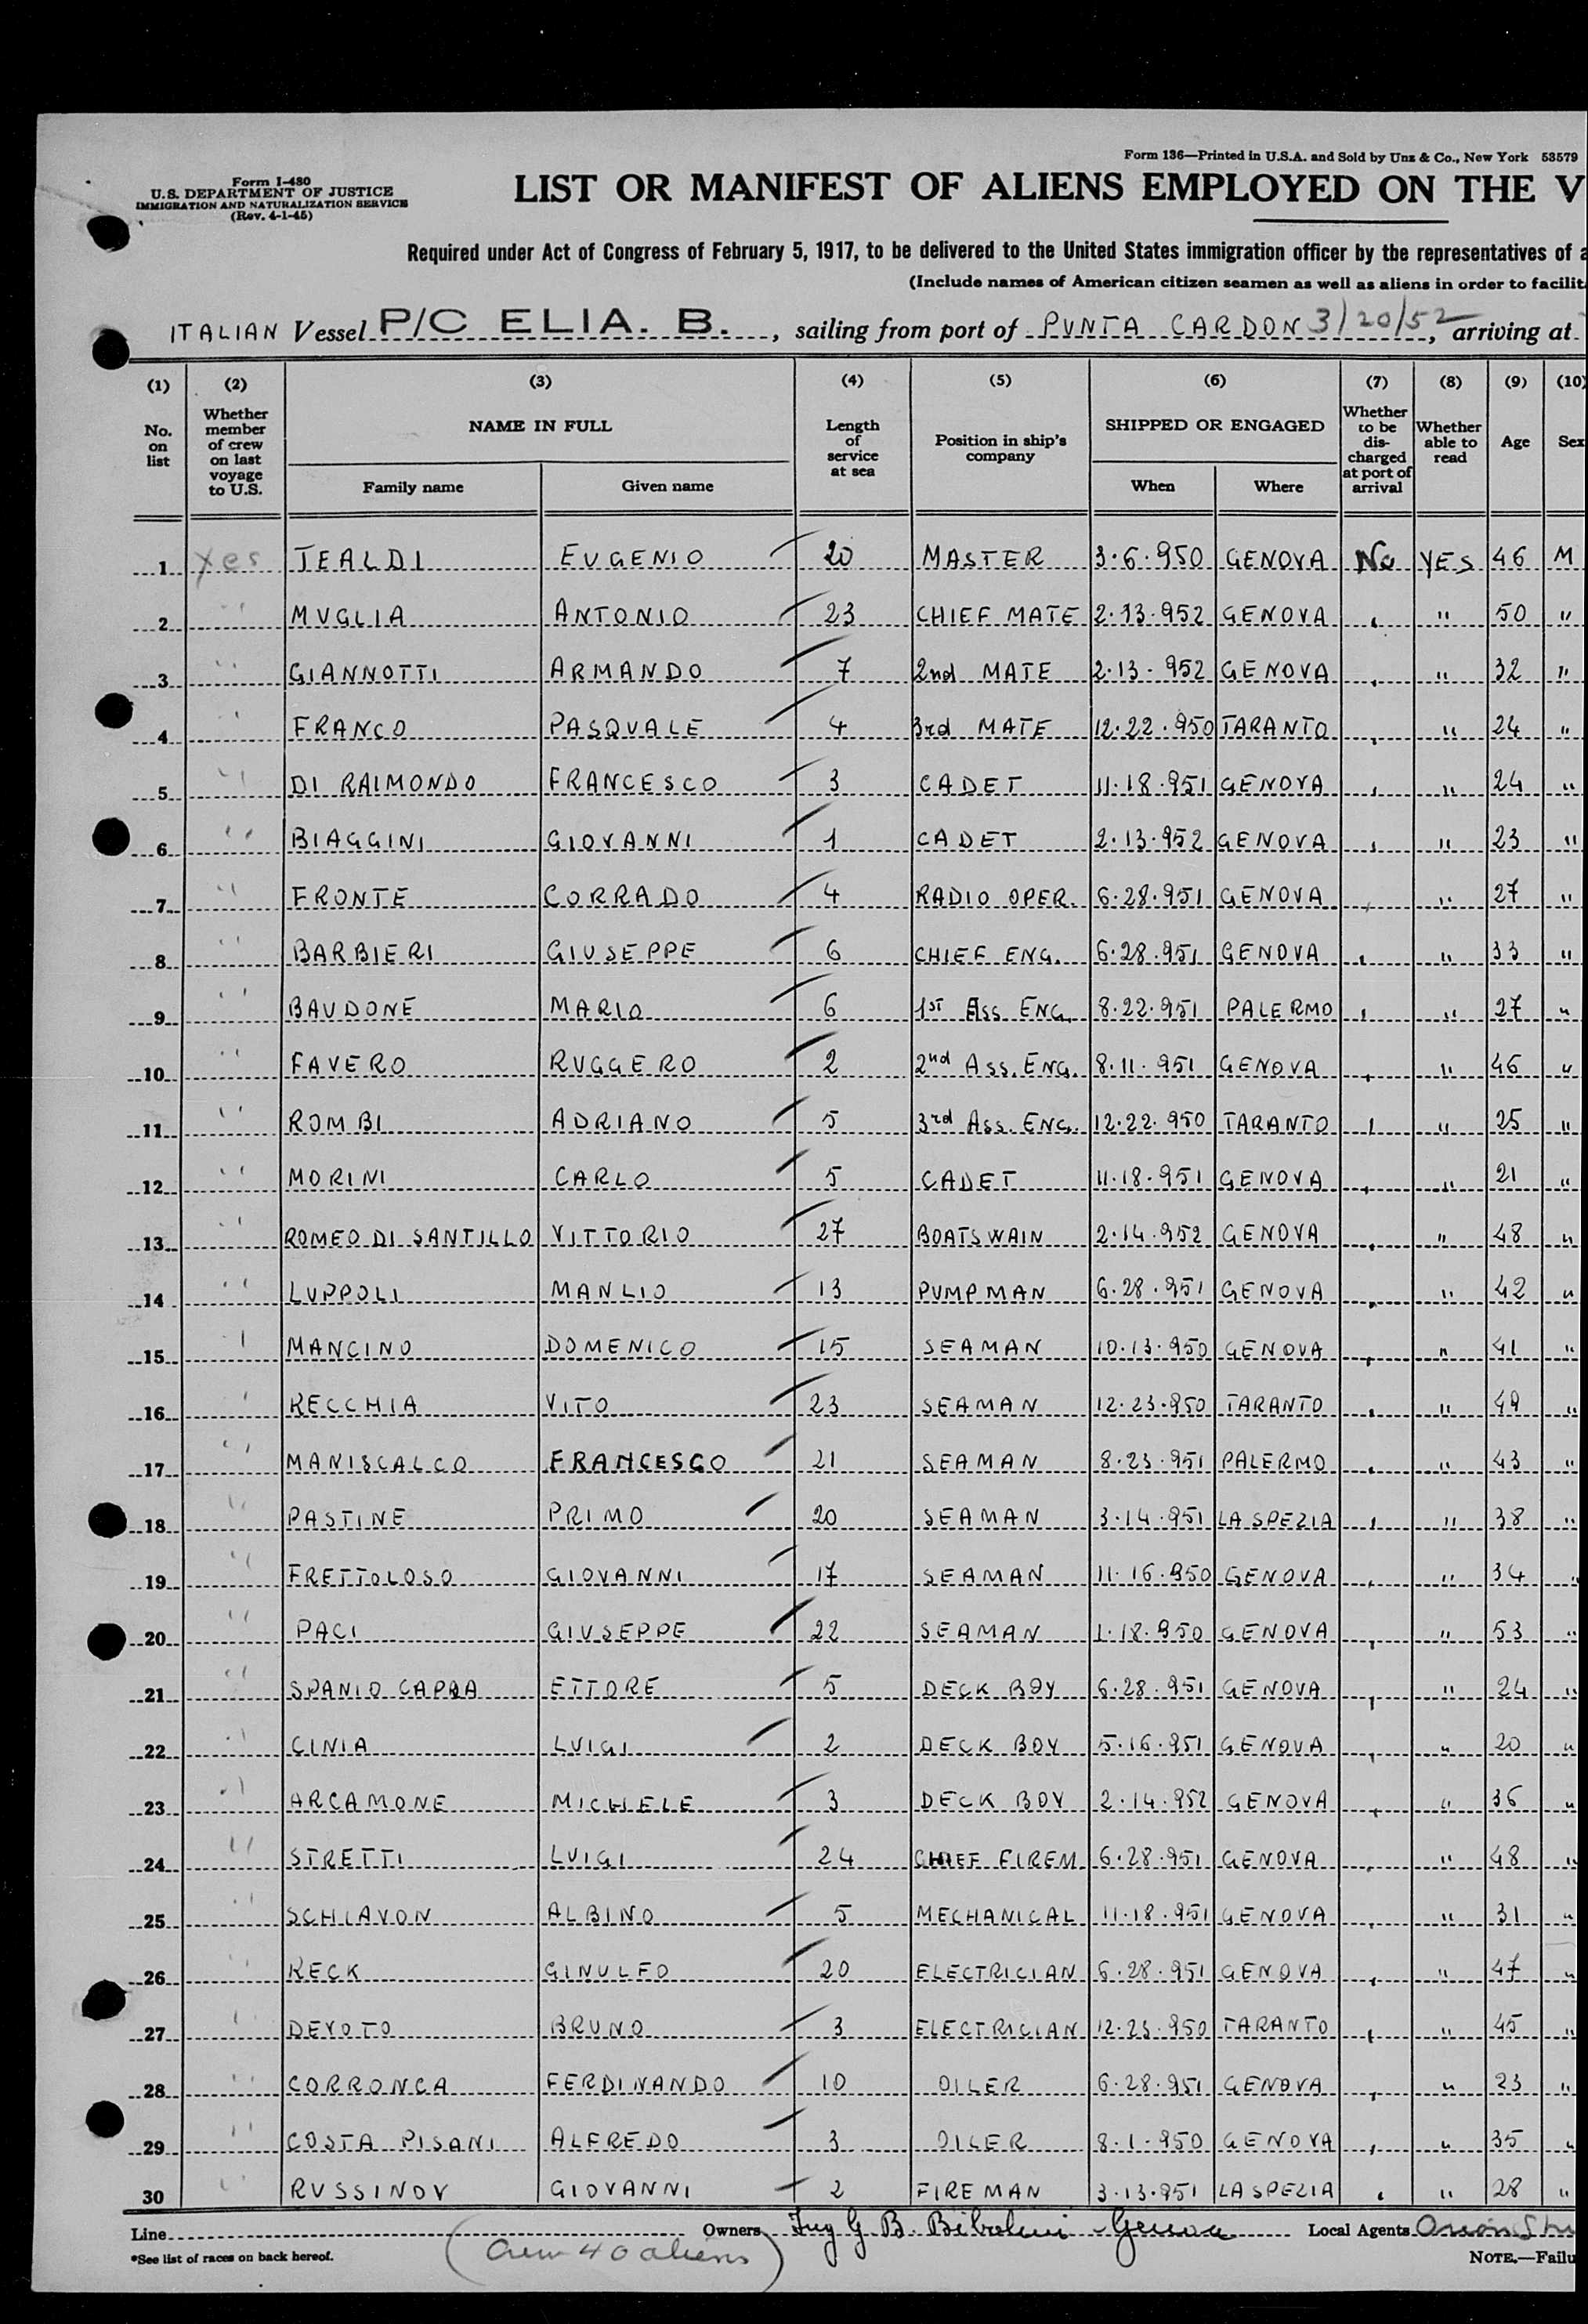 Form 136—Printed in U.S.A. and Sold by Unz & Co., New York 53579
Form I-480
U.S. DEPARTMENT OF JUSTICE
IMMIGRATION AND NATURALIZATION SERVICE
(Rev. 4-1-45)
LIST OR MANIFEST OF ALIENS EMPLOYED ON THE V
Required under Act of Congress of February 5, 1917, to be delivered to the United States immigration officer by the representatives of a
(Include names of American citizen seamen as well as aliens in order to facilit
ITALIAN Vessel P/C ELIA. B., sailing from port of PUNTA CARDON 3/20/52, arriving at
(1) (2) (3) (4) (5) (6) (7) (8) (9) (10)
No. on list Whether member of crew on last voyage to U.S. NAME IN FULL Length of service at sea Position in ship's company SHIPPED OR ENGAGED Whether to be discharged at port of arrival Whether able to read Age Sex
Family name Given name When Where
1 Yes TEALDI EUGENIO 20 MASTER 3·6·950 GENOVA No YES 46 M
2 " MUGLIA ANTONIO 23 CHIEF MATE 2·13·952 GENOVA , " 50 "
3 " GIANNOTTI ARMANDO 7 2nd MATE 2·13·952 GENOVA , " 32 "
4 " FRANCO PASQUALE 4 3rd MATE 12·22·950 TARANTO , " 24 "
5 " DI RAIMONDO FRANCESCO 3 CADET 11·18·951 GENOVA , " 24 "
6 " BIAGGINI GIOVANNI 1 CADET 2·13·952 GENOVA , " 23 "
7 " FRONTE CORRADO 4 RADIO OPER. 6·28·951 GENOVA , " 27 "
8 " BARBIERI GIUSEPPE 6 CHIEF ENG. 6·28·951 GENOVA , " 33 "
9 " BAUDONE MARIO 6 1ST Ass ENG. 8·22·951 PALERMO , " 27 "
10 " FAVERO RUGGERO 2 2nd Ass. ENG. 8·11·951 GENOVA , " 46 "
11 " ROMBI ADRIANO 5 3rd Ass. ENG. 12·22·950 TARANTO , " 25 "
12 " MORINI CARLO 5 CADET 11·18·951 GENOVA , " 21 "
13 " ROMEO DI SANTILLO VITTORIO 27 BOATSWAIN 2·14·952 GENOVA , " 48 "
14 " LUPPOLI MANLIO 13 PUMPMAN 6·28·951 GENOVA , " 42 "
15 " MANCINO DOMENICO 15 SEAMAN 10·13·950 GENOVA , " 41 "
16 " RECCHIA VITO 23 SEAMAN 12·23·950 TARANTO , " 49 "
17 " MANISCALCO FRANCESCO 21 SEAMAN 8·23·951 PALERMO , " 43 "
18 " PASTINE PRIMO 20 SEAMAN 3·14·951 LA SPEZIA , " 38 "
19 " FRETTOLOSO GIOVANNI 17 SEAMAN 11·16·950 GENOVA , " 34 "
20 " PACI GIUSEPPE 22 SEAMAN 1·18·950 GENOVA , " 53 "
21 " SPANIO CAPRA ETTORE 5 DECK BOY 6·28·951 GENOVA , " 24 "
22 " CINIA LUIGI 2 DECK BOY 5·16·951 GENOVA , " 20 "
23 " ARCAMONE MICHELE 3 DECK BOY 2·14·952 GENOVA , " 36 "
24 " STRETTI LUIGI 24 CHIEF FIREM 6·28·951 GENOVA , " 48 "
25 " SCHIAVON ALBINO 5 MECHANICAL 11·18·951 GENOVA , " 31 "
26 " KECK GINULFO 20 ELECTRICIAN 6·28·951 GENOVA , " 47 "
27 " DEVOTO BRUNO 3 ELECTRICIAN 12·23·950 TARANTO , " 45 "
28 " CORRONCA FERDINANDO 10 OILER 6·28·951 GENOVA , " 23 "
29 " COSTA PISANI ALFREDO 3 OILER 8·1·950 GENOVA , " 35 "
30 " RUSSINOV GIOVANNI 2 FIREMAN 3·13·951 LA SPEZIA , " 28 "
Line Owners Ing G. B. Bibolini - Genova Local Agents Orion
*See list of races on back hereof. (Crew 40 aliens) NOTE.—Failu